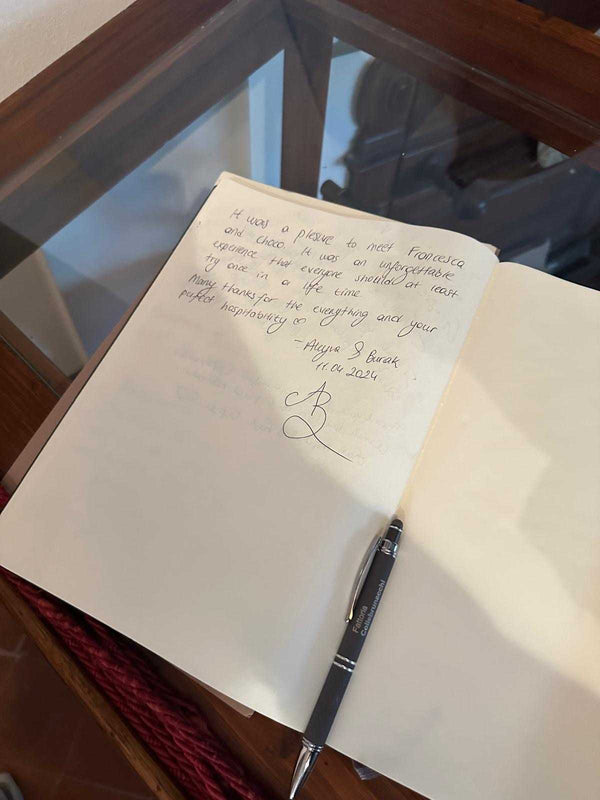 It was a plesure to meet Francesca
and choco. It was an unforgettable
experience that everyone should at least
try once in a life time
Many thanks for the everything and your
perfect hospitability ♡
- Aleyva & Burak
11.04.2024
AB
Fattoria
Collebrunacchi